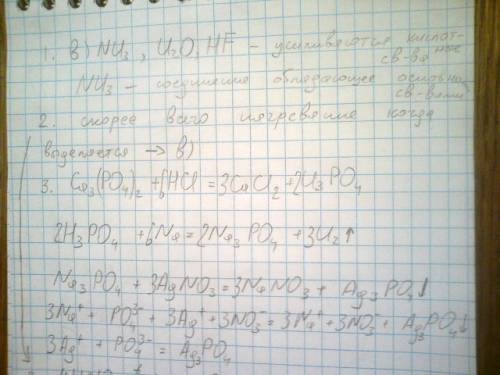 1. в) NH₃, H₂O, HF – усиливаются кислотные св-ва
NH₃ – соединение обладающее основн. св-вами
2. скорее всего нагревание когда
выделяется → в)
3. Ca₃(PO₄)₂ + 6HCl = 3CaCl₂ + 2H₃PO₄
2H₃PO₄ + 6Na = 2Na₃PO₄ + 3H₂↑
Na₃PO₄ + 3AgNO₃ = 3NaNO₃ + Ag₃PO₄↓
3Na⁺ + PO₄³⁻ + 3Ag⁺ + 3NO₃⁻ = 3Na⁺ + 3NO₃⁻ + Ag₃PO₄↓
3Ag⁺ + PO₄³⁻ = Ag₃PO₄